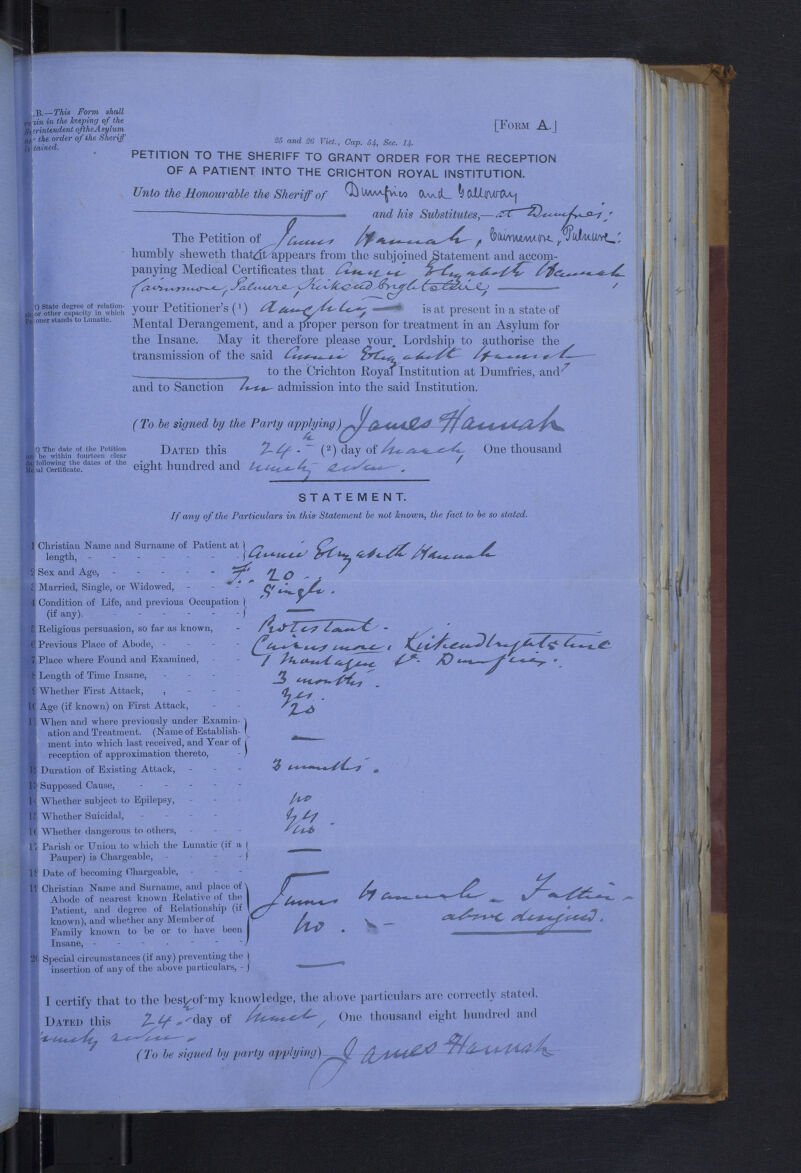 .B.—This Form shall
in in the keeping of the
rintendent of the Asylum
the order of the Sheriff
tained.
[FORM A.]
25 and 26 Vict., Cap. 54, Sec. 14.
PETITION TO THE SHERIFF TO GRANT ORDER FOR THE RECEPTION
OF A PATIENT INTO THE CRICHTON ROYAL INSTITUTION.
Unto the Honourable the Sheriff of Dumfries and Galloway
and his Substitutes,— at Dumfries;
The Petition of James Hannah, Cairnsmore, Palnure:
humbly sheweth that it appears from the subjoined Statement and accom-
panying Medical Certificates that Annie Elizabeth Hannah
Cairnsmore, Palnure, Kirkcudbrightshire,
) State degree of relation-
or other capacity in which
oner stands to Lunatic.
your Petitioner's (1) daughter, is at present in a state of
Mental Derangement, and a proper person for treatment in an Asylum for
the Insane. May it therefore please your Lordship to authorise the
transmission of the said Annie Elizabeth Hannah
to the Crichton Royal Institution at Dumfries, and
and to Sanction her admission into the said Institution.
(To be signed by the Party applying) James Hannah
) The date of the Petition
be within fourteen clear
following the dates of the
al Certificate.
DATED this 24.th (2) day of March, One thousand
eight hundred and ninety seven.
STATEMENT.
If any of the Particulars in this Statement be not known, the fact to be so stated.
1 Christian Name and Surname of Patient at length, - Annie Elizabeth Hannah
2 Sex and Age, - F. 20.
3 Married, Single, or Widowed, - Single.
4 Condition of Life, and previous Occupation
(if any). - —
5 Religious persuasion, so far as known, - Protestant.
6 Previous Place of Abode, - Cairnsmore, Kirkcudbrightshire
7 Place where Found and Examined, - 1 Montague St. Dumfries.
8 Length of Time Insane, - 3 months.
9 Whether First Attack, - Yes.
10 Age (if known) on First Attack, - 20
11 When and where previously under Examin-
ation and Treatment. (Name of Establish-
ment into which last received, and Year of
reception of approximation thereto, - —
12 Duration of Existing Attack, - 3 months.
13 Supposed Cause, -
14 Whether subject to Epilepsy, - No
15 Whether Suicidal, - Yes.
16 Whether dangerous to others, - No
17 Parish or Union to which the Lunatic (if a
Pauper) is Chargeable, - —
18 Date of becoming Chargeable, -
19 Christian Name and Surname, and place of
Abode of nearest known Relative of the
Patient, and degree of Relationship (if
known), and whether any Member of
Family known to be or to have been
Insane, -
James Hannah - Father -
above designed.
No. -
20 Special circumstances (if any) preventing the
insertion of any of the above particulars, - —
I certify that to the best of my knowledge, the above particulars are correctly stated.
DATED this 24th day of March, One thousand eight hundred and
ninety seven.
(To be signed by party applying) James Hannah